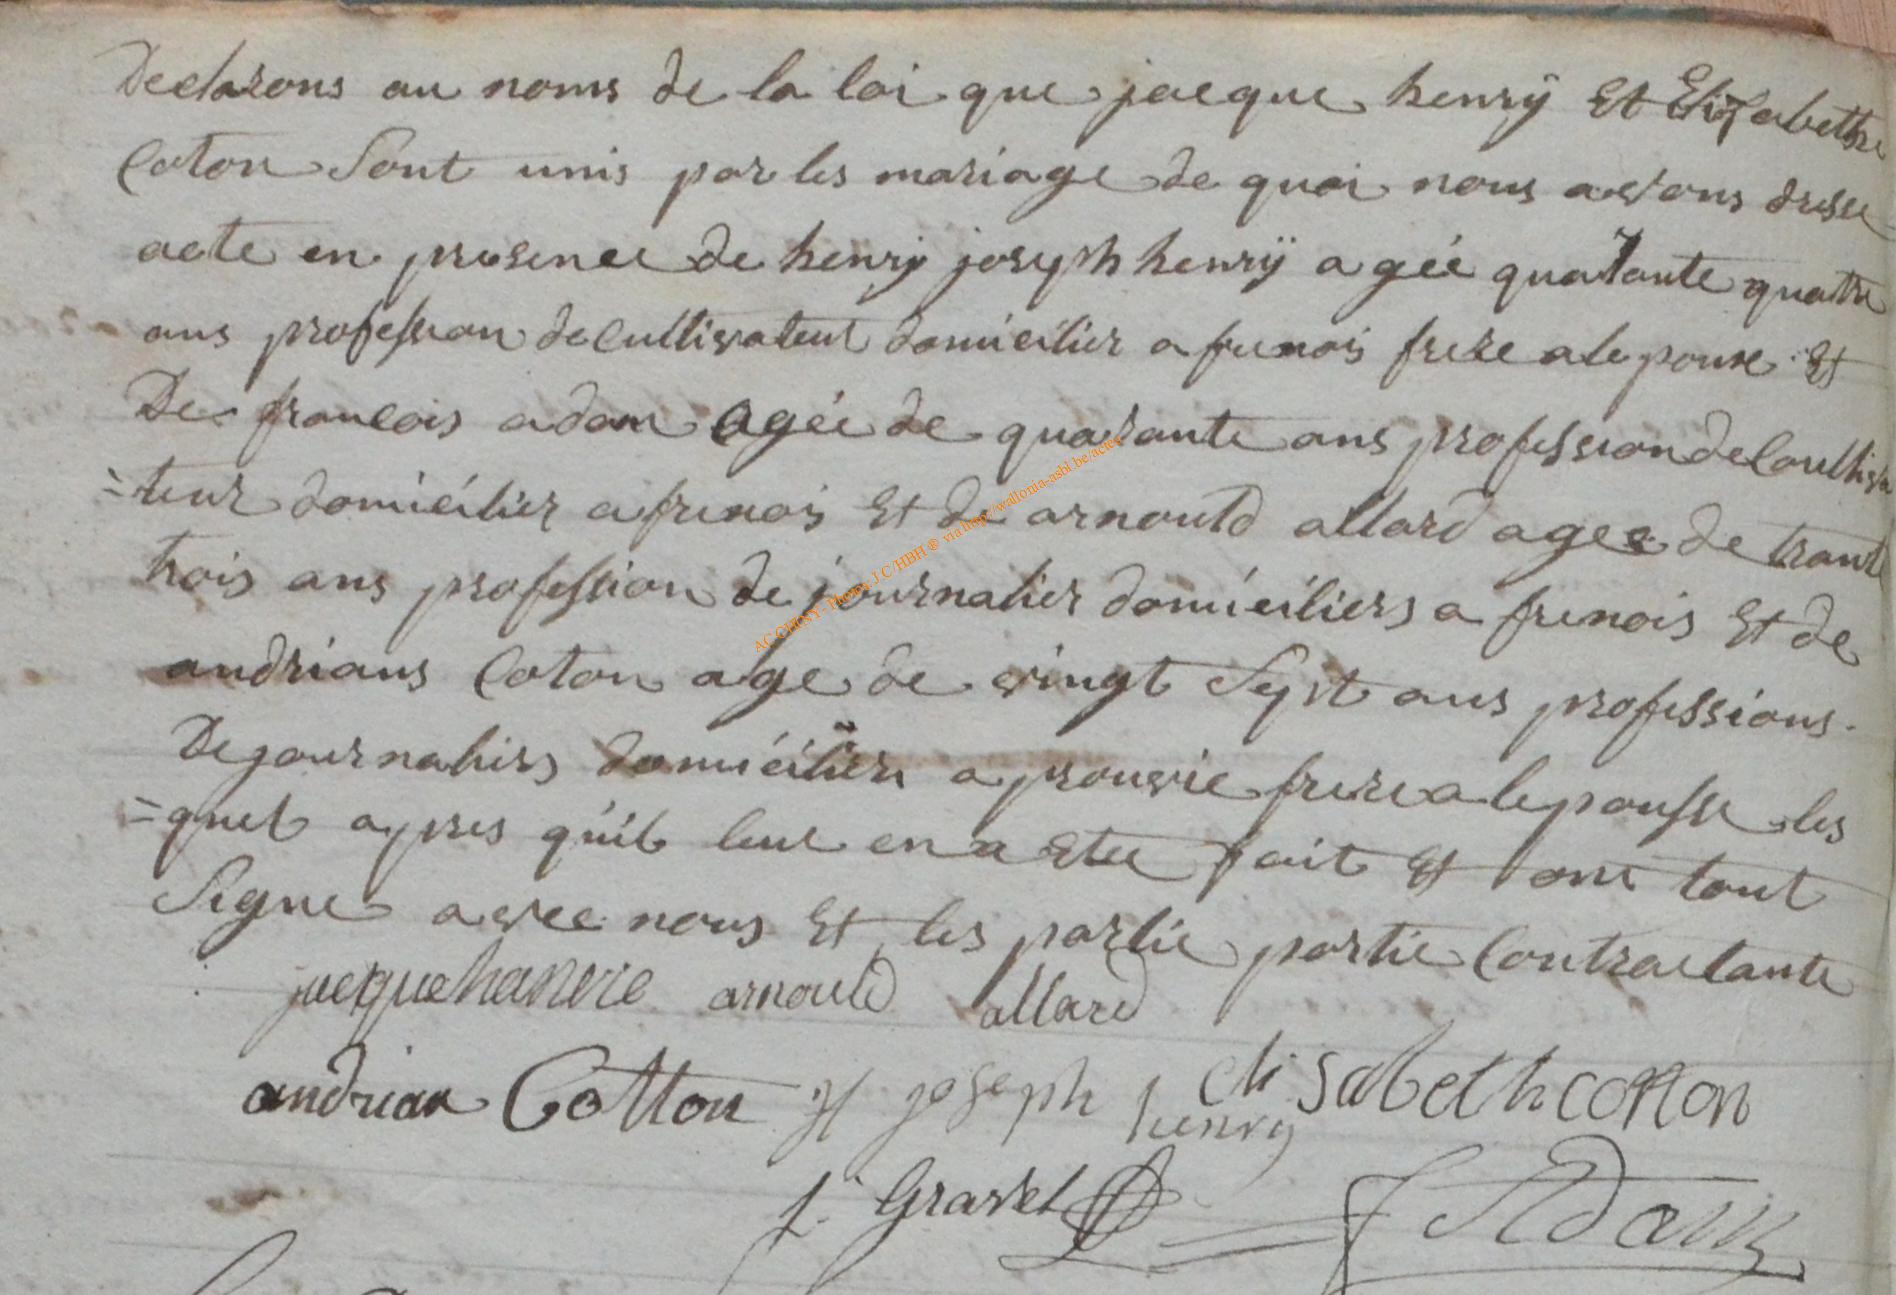 Declarons au noms de la loi que jacque henrÿ Et Elizabethe
Coton Sont unis par les mariage de quoi nous avons dresse
acte en presence de henrÿ joseph henrÿ agée quarante quatre
ans profession de cultivateur domicilier a frenois frere a lepouse Et
De francois adam agée de quarante ans profession de Coultiva
=teur domicilier a frenois Et de arnould allard agee de trant
trois ans profession de journalier domiciliers a frenois Et de
andrians Coton age de vingt Sept ans professions
De journaliers domicilier a prouvie frere a lepousse les
=quel apres quil leur en a Etee fait Et ont tout
Signe avec nous Et les partie partie Contractante
jacque hanrie arnould allard
andrian Cotton H joseph henry elisabeth cotton
f. Gravet F Adam
AC CHINY - Photos J.C/HBH ® via http://wallonia-asbl.be/actes